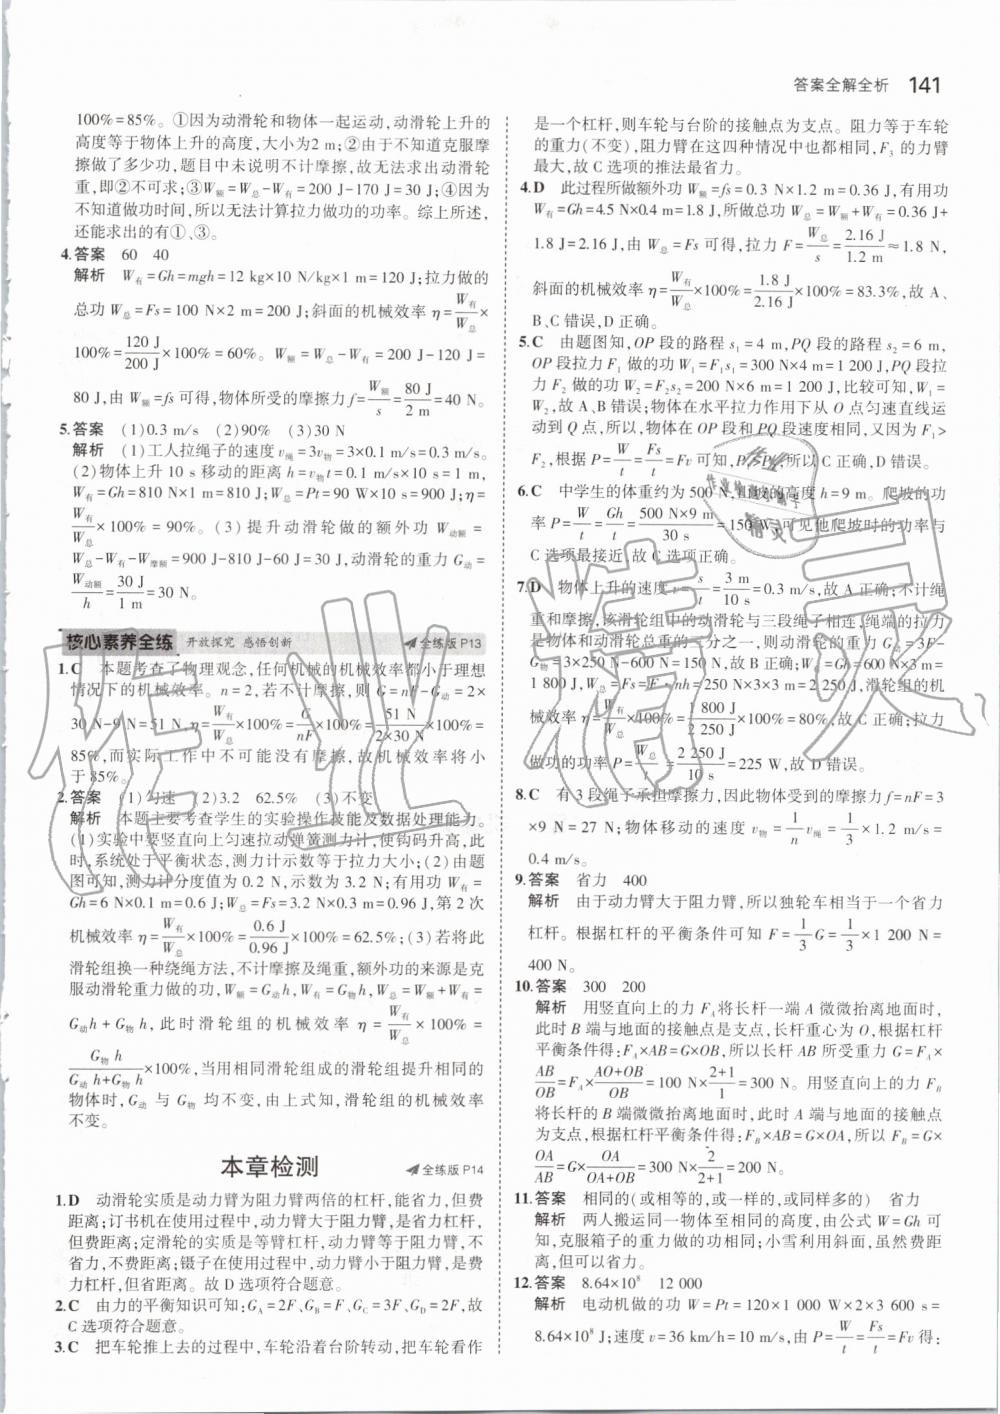 答案全解全析 141
100%=85%。①因为动滑轮和物体一起运动,动滑轮上升的
高度等于物体上升的高度,大小为2 m;②由于不知道克服摩
擦做了多少功,题目中未说明不计摩擦,故无法求出动滑轮
重,即②不可求;③W额=W总-W有=200 J-170 J=30 J;④因为
不知道做功时间,所以无法计算拉力做功的功率。综上所述,
还能求出的有①、③。
4.答案 60 40
解析 W有=Gh=mgh=12 kg×10 N/kg×1 m=120 J;拉力做的
总功 W总=Fs=100 N×2 m=200 J;斜面的机械效率 η=W有/W总×
100%=120 J/200 J×100%=60%。W额=W总-W有=200 J-120 J=
80 J,由 W额=fs 可得,物体所受的摩擦力 f=W额/s=80 J/2 m=40 N。
5.答案 (1)0.3 m/s (2)90% (3)30 N
解析 (1)工人拉绳子的速度 v绳=3v物=3×0.1 m/s=0.3 m/s。
(2)物体上升 10 s 移动的距离 h=v物t=0.1 m/s×10 s=1 m,
W有=Gh=810 N×1 m=810 J;W总=Pt=90 W×10 s=900 J,η=
W有/W总×100%=90%。(3)提升动滑轮做的额外功 W动额=
W总-W有-W摩额=900 J-810 J-60 J=30 J,动滑轮的重力 G动=
W动额/h=30 J/1 m=30 N。
核心素养全练 开放探究 感悟创新 全练版 P13
1.C 本题考查了物理观念,任何机械的机械效率都小于理想
情况下的机械效率。n=2,若不计摩擦,则 G=nF-G动=2×
30 N-9 N=51 N,η=W有/W总×100%=G/nF×100%=51 N/2×30 N×100%=
85%,而实际工作中不可能没有摩擦,故机械效率将小
于85%。
2.答案 (1)匀速 (2)3.2 62.5% (3)不变
解析 本题主要考查学生的实验操作技能及数据处理能力。
(1)实验中要竖直向上匀速拉动弹簧测力计,使钩码升高,此
时,系统处于平衡状态,测力计示数等于拉力大小;(2)由题
图可知,测力计分度值为 0.2 N,示数为 3.2 N;有用功 W有=
Gh=6 N×0.1 m=0.6 J,W总=Fs=3.2 N×0.3 m=0.96 J,第 2 次
机械效率 η=W有/W总×100%=0.6 J/0.96 J×100%=62.5%;(3)若将此
滑轮组换一种绕绳方法,不计摩擦及绳重,额外功的来源是克
服动滑轮重力做的功,W额=G动h,W有=G物h,W总=W额+W有=
G动h+G物h,此时滑轮组的机械效率 η=W有/W总×100%=
G物h/G动h+G物h×100%,当用相同滑轮组成的滑轮组提升相同的
物体时,G动 与 G物 均不变,由上式知,滑轮组的机械效率
不变。
本章检测 全练版 P14
1.D 动滑轮实质是动力臂为阻力臂两倍的杠杆,能省力,但费
距离;订书机在使用过程中,动力臂大于阻力臂,是省力杠杆,
但费距离;定滑轮的实质是等臂杠杆,在使用过程中,不
省力,不费距离;镊子在使用过程中,动力臂小于阻力臂,是费
力杠杆,但省距离。故 D 选项符合题意。
2.C 由力的平衡知识可知:GA=2F、GB=F、GC=3F、GD=2F,故
C 选项符合题意。
3.C 把车轮推上去的过程中,车轮沿着台阶转动,把车轮看作
是一个杠杆,则车轮与台阶的接触点为支点。阻力等于车轮
的重力(不变),阻力臂在这四种情况中也都相同,F3 的力臂
最大,故 C 选项的推法最省力。
4.D 此过程所做额外功 W额=fs=0.3 N×1.2 m=0.36 J,有用功
W有=Gh=4.5 N×0.4 m=1.8 J,所做总功 W总=W额+W有=0.36 J+
1.8 J=2.16 J,由 W总=Fs 可得,拉力 F=W总/s=2.16 J/1.2 m≈1.8 N,
斜面的机械效率 η=W有/W总×100%=1.8 J/2.16 J×100%=83.3%,故 A、
B、C 错误,D 正确。
5.C 由题图知,OP 段的路程 s1=4 m,PQ 段的路程 s2=6 m,
OP 段拉力 F1 做的功 W1=F1s1=300 N×4 m=1 200 J,PQ段拉
力 F2 做的功 W2=F2s2=200 N×6 m=1 200 J,比较可知,W1=
W2,故 A、B 错误;物体在水平拉力作用下从 O 点匀速直线运
动到 Q 点,所以,物体在 OP 段和 PQ 段速度相同,又因为 F1>
F2,根据 P=W/t=Fs/t=Fv 可知,P1>P2,所以 C 正确,D 错误。
6.C 中学生的体重约为 500 N,坡的高度 h=9 m。爬坡的功
率 P=W/t=Gh/t=500 N×9 m/30 s=150 W,可见他爬坡时的功率与
C 选项最接近,故 C 选项正确。
7.D 物体上升的速度 v=s/t=3 m/10 s=0.3 m/s,故 A 正确;不计绳
重和摩擦,该滑轮组中的动滑轮与三段绳子相连,绳端的拉力
是物体和动滑轮总重的三分之一,则动滑轮的重力 G动=3F-
G物=3×250 N-600 N=150 N,故 B 正确;W有=Gh=600 N×3 m=
1 800 J,W总=Fs=F·nh=250 N×3×3 m=2 250 J,滑轮组的机
械效率 η=W有/W总×100%=1 800 J/2 250 J×100%=80%,故 C 正确;拉力
做功的功率 P=W总/t=2 250 J/10 s=225 W,故 D 错误。
8.C 有 3 段绳子承担摩擦力,因此物体受到的摩擦力 f=nF=3
×9 N=27 N;物体移动的速度 v物=1/n v绳=1/3×1.2 m/s=
0.4 m/s。
9.答案 省力 400
解析 由于动力臂大于阻力臂,所以独轮车相当于一个省力
杠杆。根据杠杆的平衡条件可知 F=1/3G=1/3×1 200 N=
400 N。
10.答案 300 200
解析 用竖直向上的力 FA将长杆一端 A 微微抬离地面时,
此时 B 端与地面的接触点是支点,长杆重心为 O,根据杠杆
平衡条件得:FA×AB=G×OB,所以长杆 AB 所受重力 G=FA×
AB/OB=FA×AO+OB/OB=100 N×2+1/1=300 N。用竖直向上的力 FB
将长杆的 B 端微微抬离地面时,此时 A 端与地面的接触点
为支点,根据杠杆平衡条件得:FB×AB=G×OA,所以 FB=G×
OA/AB=G×OA/OA+OB=300 N×2/2+1=200 N。
11.答案 相同的(或相等的,或一样的,或同样多的) 省力
解析 两人搬运同一物体至相同的高度,由公式 W=Gh 可
知,克服箱子的重力做的功相同;小雪利用斜面,虽然费距
离,但可以省力。
12.答案 8.64×10⁸ 12 000
解析 电动机做的功 W=Pt=120×1 000 W×2×3 600 s=
8.64×10⁸ J;速度 v=36 km/h=10 m/s,由 P=W/t=Fs/t=Fv 得:
作业精灵